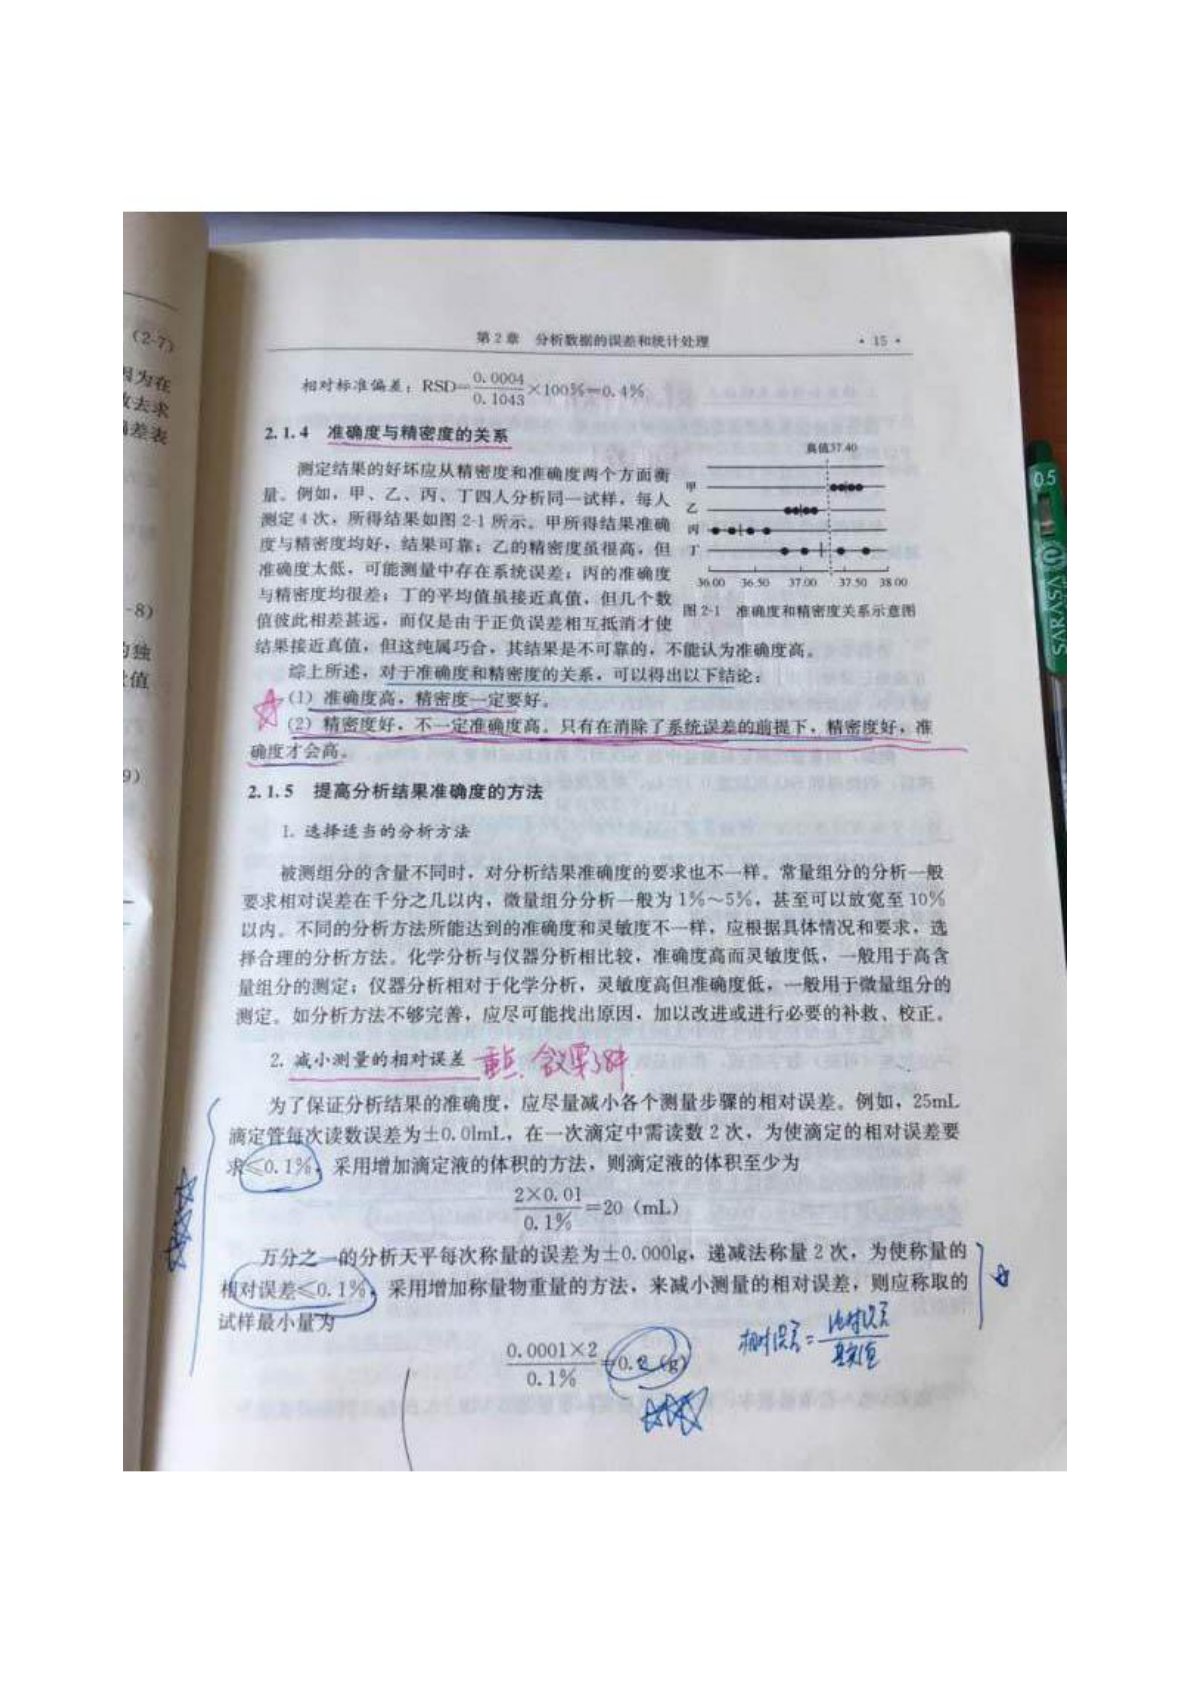 (2-7)
因为在
故去求
偏差表
-8)
的独
值
9)
第2章 分析数据的误差和统计处理 · 15 ·
相对标准偏差：RSD=0.0004/0.1043×100%=0.4%
2.1.4 准确度与精密度的关系
测定结果的好坏应从精密度和准确度两个方面衡
量。例如，甲、乙、丙、丁四人分析同一试样，每人
测定4次，所得结果如图2-1所示。甲所得结果准确
度与精密度均好，结果可靠；乙的精密度虽很高，但
准确度太低，可能测量中存在系统误差；丙的准确度
与精密度均很差；丁的平均值虽接近真值，但几个数
值彼此相差甚远，而仅是由于正负误差相互抵消才使
结果接近真值，但这纯属巧合，其结果是不可靠的，不能认为准确度高。
真值37.40
甲
乙
丙
丁
36.00 36.50 37.00 37.50 38.00
图2-1 准确度和精密度关系示意图
综上所述，对于准确度和精密度的关系，可以得出以下结论：
(1) 准确度高，精密度一定要好。
(2) 精密度好，不一定准确度高。只有在消除了系统误差的前提下，精密度好，准
确度才会高。
2.1.5 提高分析结果准确度的方法
1. 选择适当的分析方法
被测组分的含量不同时，对分析结果准确度的要求也不一样。常量组分的分析一般
要求相对误差在千分之几以内，微量组分分析一般为1%～5%，甚至可以放宽至10%
以内。不同的分析方法所能达到的准确度和灵敏度不一样，应根据具体情况和要求，选
择合理的分析方法。化学分析与仪器分析相比较，准确度高而灵敏度低，一般用于高含
量组分的测定；仪器分析相对于化学分析，灵敏度高但准确度低，一般用于微量组分的
测定。如分析方法不够完善，应尽可能找出原因，加以改进或进行必要的补救、校正。
2. 减小测量的相对误差 重点
为了保证分析结果的准确度，应尽量减小各个测量步骤的相对误差。例如，25mL
滴定管每次读数误差为±0.01mL，在一次滴定中需读数2次，为使滴定的相对误差要
求≤0.1%，采用增加滴定液的体积的方法，则滴定液的体积至少为
2×0.01/0.1%=20（mL）
万分之一的分析天平每次称量的误差为±0.0001g，递减法称量2次，为使称量的
相对误差≤0.1%，采用增加称量物重量的方法，来减小测量的相对误差，则应称取的
试样最小量为
0.0001×2/0.1%=0.2（g）
相对误差=绝对误差/真实值
0.5
SARASA